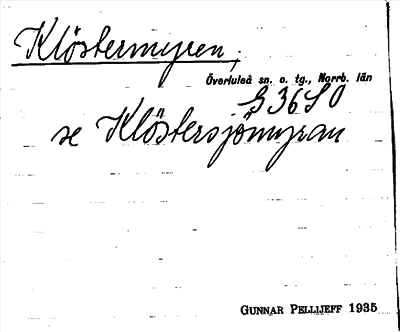 Klöstermyren,
Överluleå sn. o. tg., Norrb. län
B 36 S O
se Klöstersjömyran
GUNNAR PELLIJEFF 1935